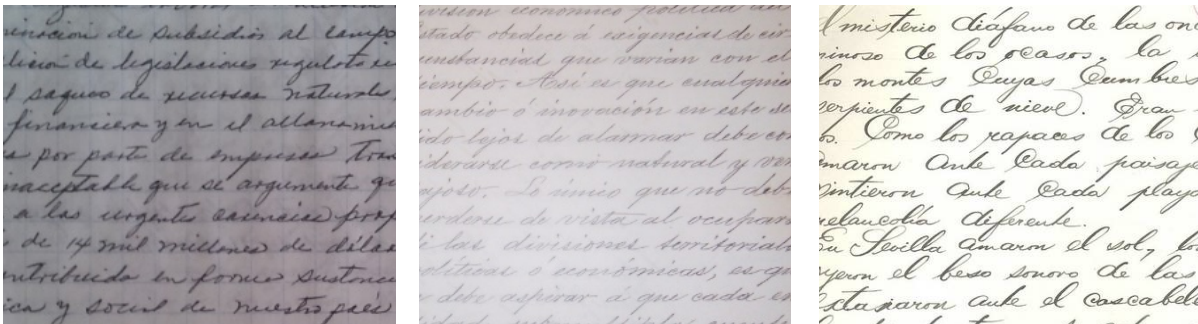 inación de subsidios al campo
lición de legislaciones
l saqueo de recursos naturales,
financiera y en el allanamie
a por parte de empresas Tras
inaceptable que se argumente qu
a las urgentes carencias prop
s de 14 mil millones de dólar
ontribuido en forma sustanc
ica y social de nuestro país
ivisión económico política del
stado obedece á exigencias de cir
cunstancias que varían con el
iempo. Así es que cualquier
ambio ó inovación en este se
ido lejos de alarmar debe con
iderarse como natural y ven
ajoso. Lo único que no debe
erderse de vista al ocuparse
las divisiones territoriale
olíticas ó económicas, es qu
debe aspirar á que cada en
l misterio diáfano de las on
minoso de los ocasos, la
los montes Cuyas Cumbres
serpientes de nieve. Eran
s. Como los rapaces de los
maron ante Cada paisaj
Sintieron ante Cada playa
melancolía diferente.
En Sevilla amaron el sol, lo
yeron el beso sonoro de las
xtasiaron ante el cascabel